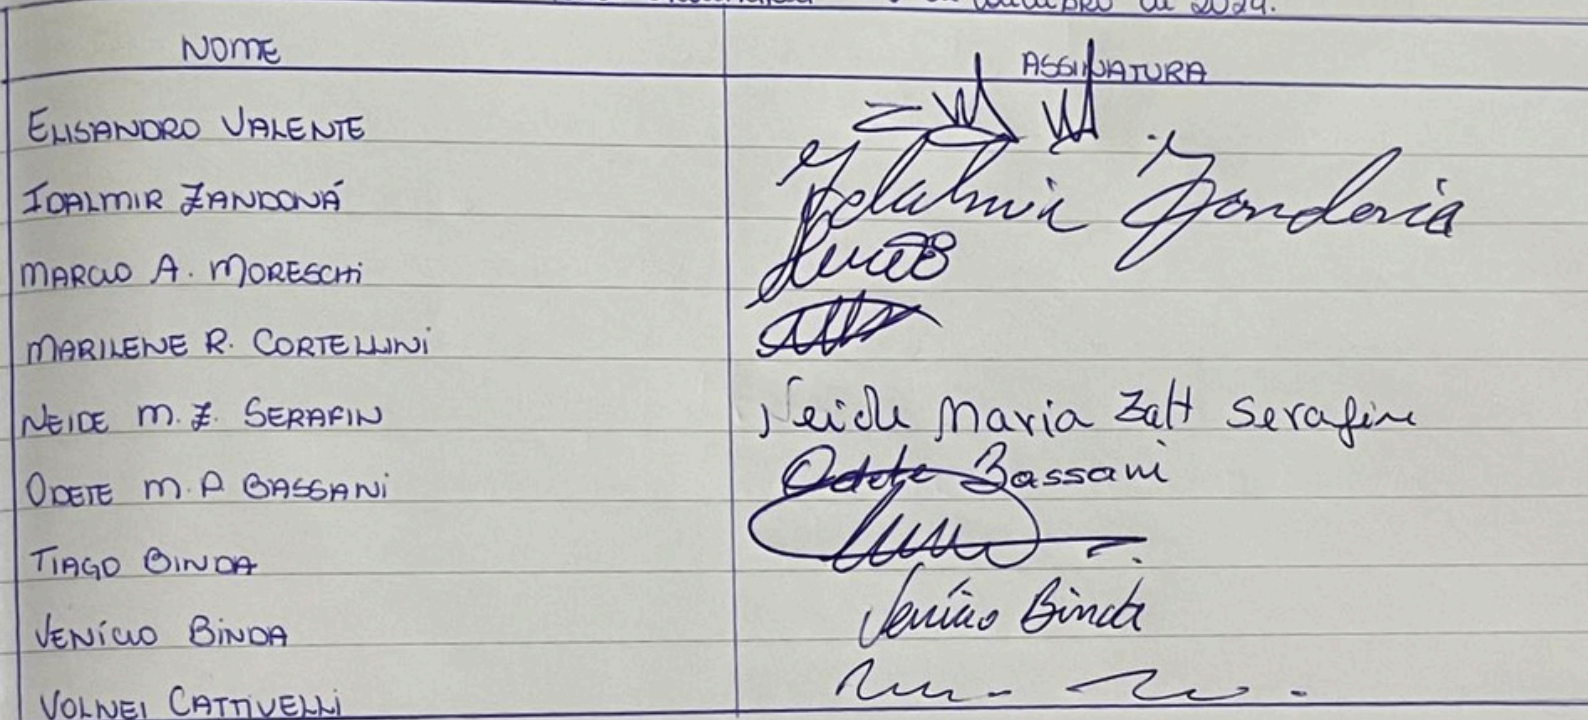 de 2024.
NOME ASSINATURA
ELISANDRO VALENTE
IDALMIR ZANDONÁ Idalmir Zandoná
MARCIO A. MORESCHI
MARILENE R. CORTELLINI
NEIDE M. Z. SERAFIN Neide Maria Zatt Serafin
ODETE M. P BASSANI Odete Bassani
TIAGO BINDA
VENÍCIO BINDA Venício Binda
VOLNEI CATTIVELLI